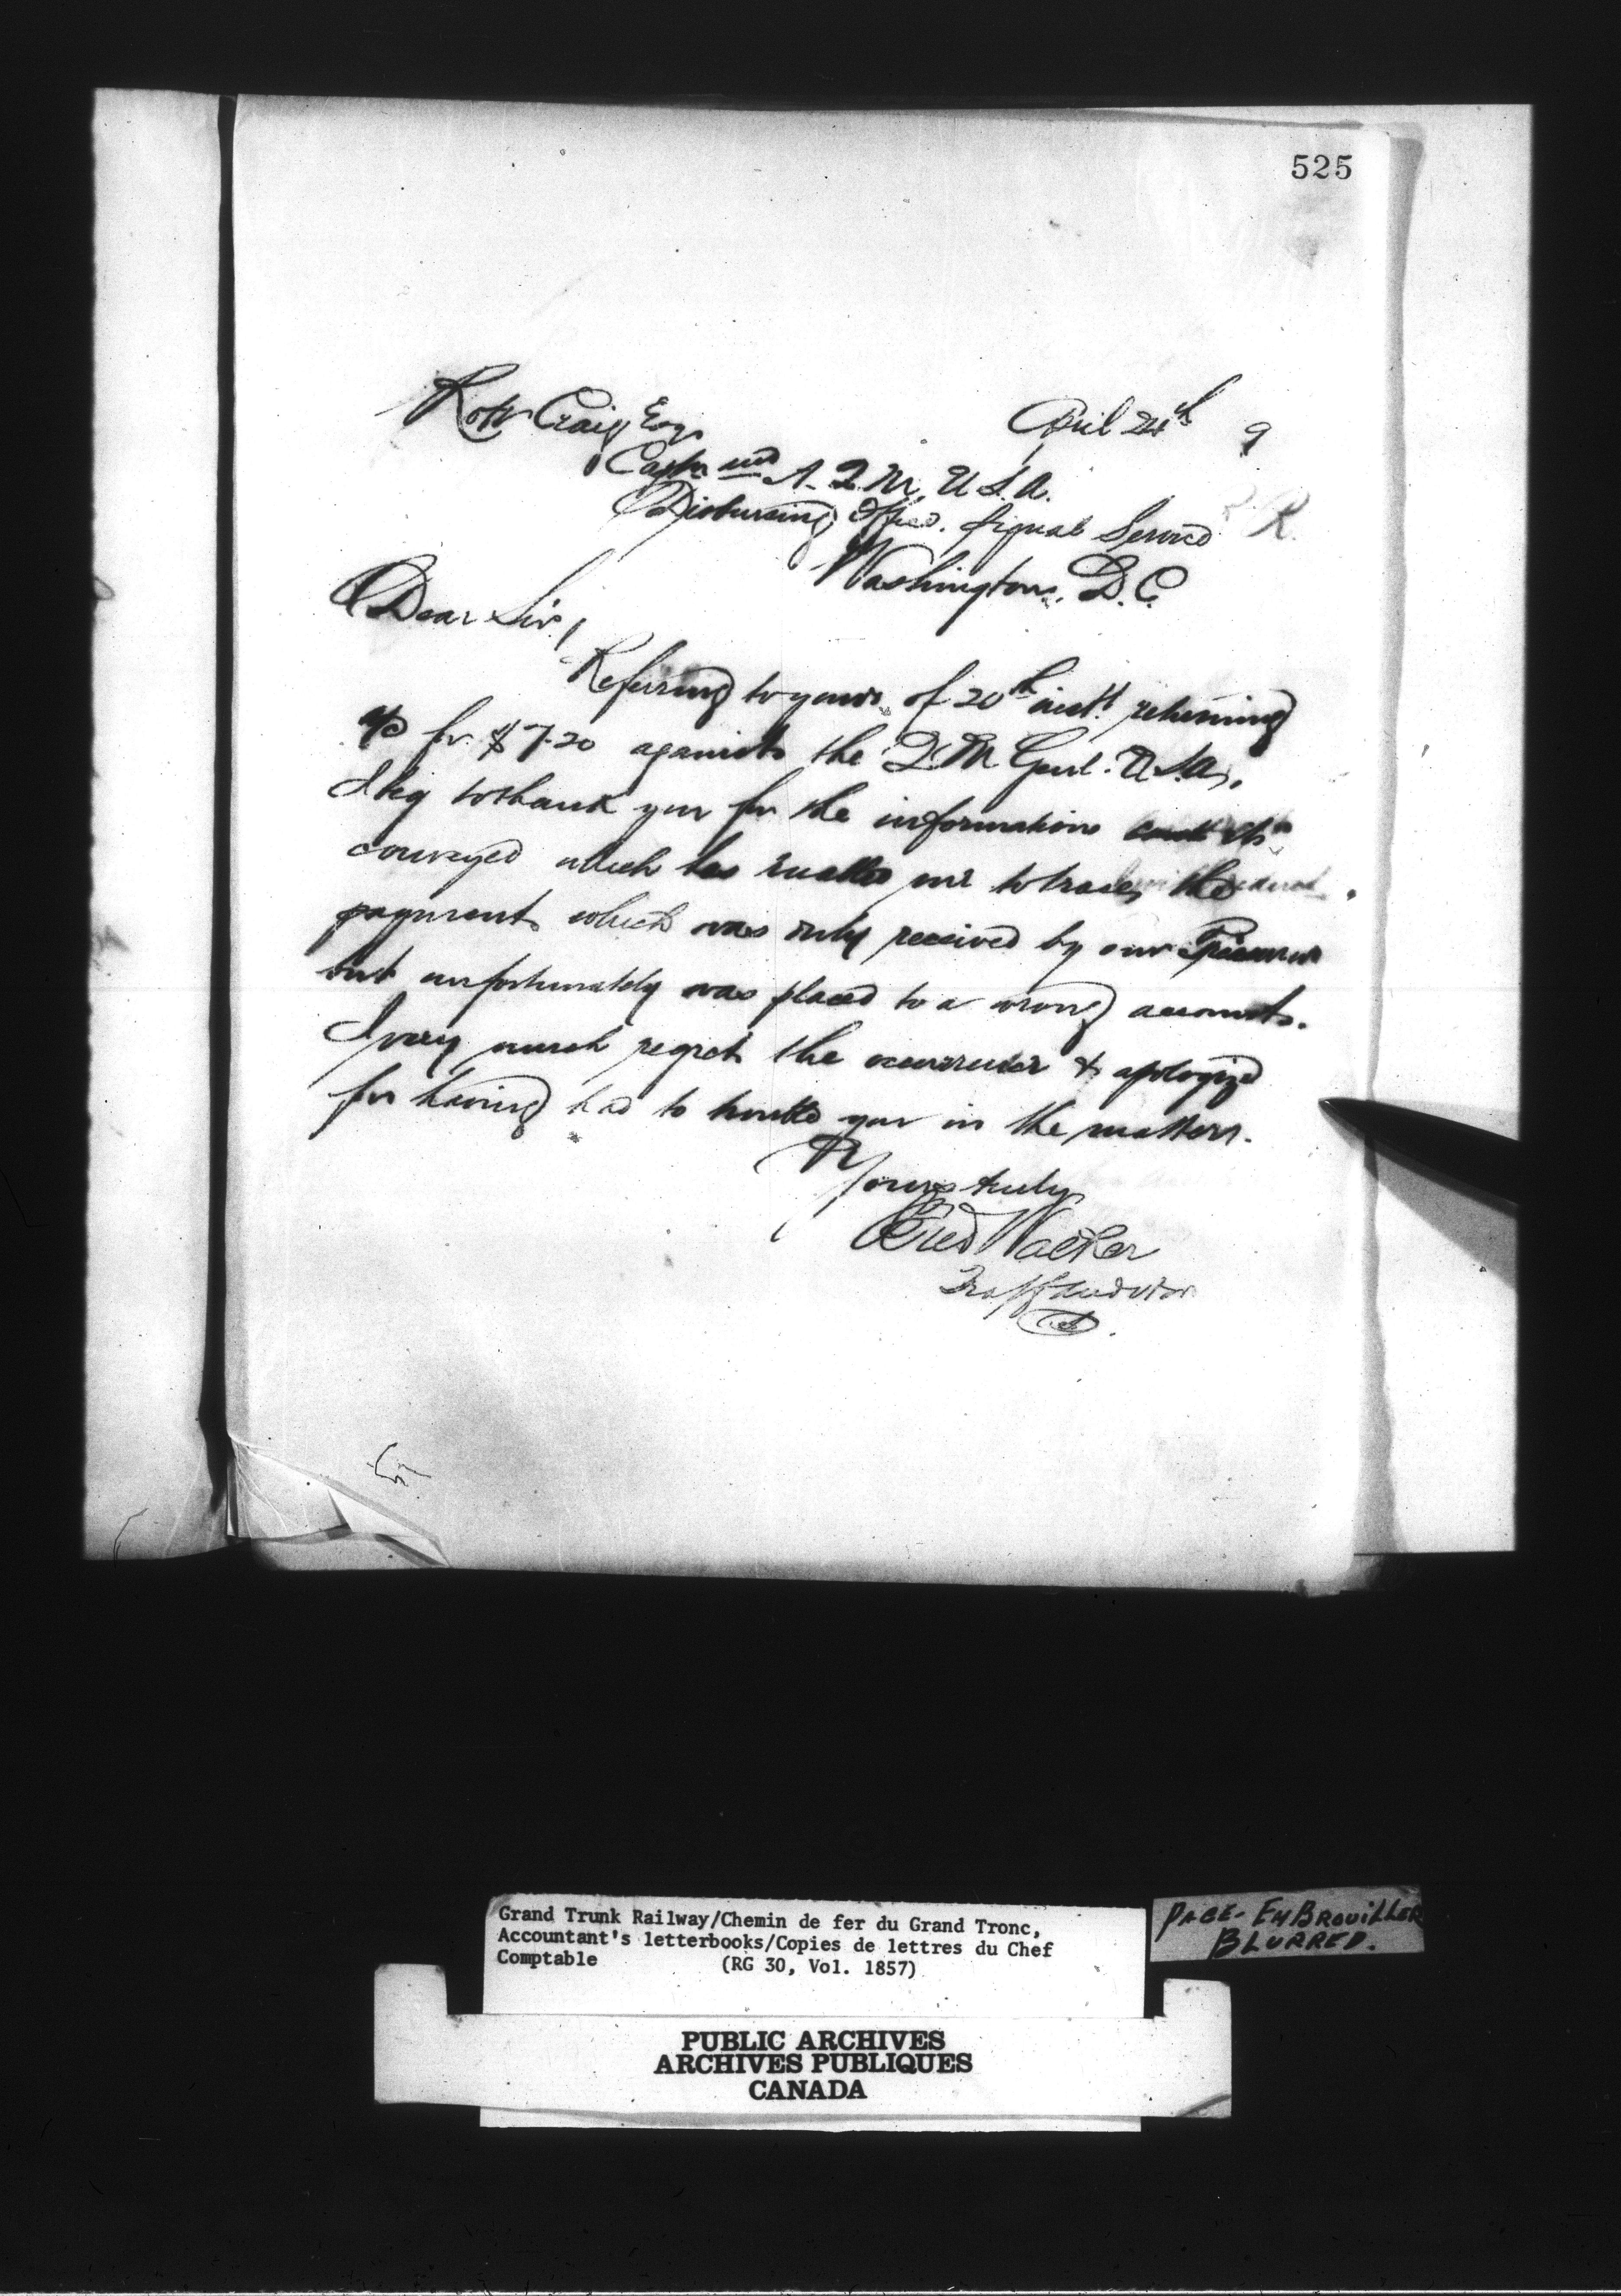 525
April 24th 9
Robt Craig Esq
Capt. and A. Q. M. U.S.A.
Disbursing Office. Signal Service
Washington, D.C.
Dear Sir,
Referring to yours of 20th inst. returning
a/c for $7.20 against the Q M Genl. U.S.A.,
I beg to thank you for the information
conveyed which has enabled me to trace the
payment which was duly received by our Treasurer
but unfortunately was placed to a wrong account.
I very much regret the occurrence & apologize
for having had to trouble you in the matter.
Yours truly
Fred Walker
Traff Auditor
Grand Trunk Railway/Chemin de fer du Grand Tronc,
Accountant's letterbooks/Copies de lettres du Chef
Comptable (RG 30, Vol. 1857)
PAGE- EMBROUILLER
BLURRED.
PUBLIC ARCHIVES
ARCHIVES PUBLIQUES
CANADA